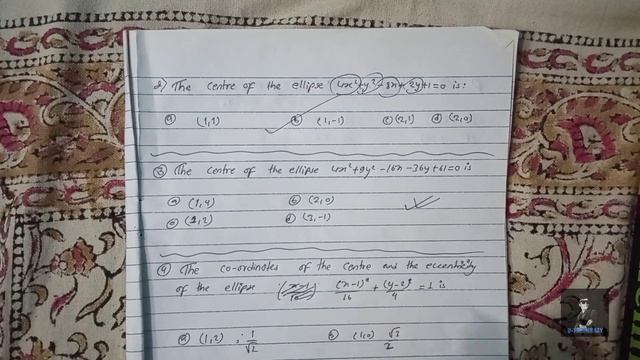 2) The centre of the ellipse 4x²+y²-8x+2y+1=0 is:
(a) (1,1) (b) (1,-1) (c) (2,1) (d) (2,0)
(3) The centre of the ellipse 4x²+9y²-16x-36y+61=0 is
(a) (1,4) (b) (2,0)
(c) (2,2) (d) (3,-1)
(4) The co-ordinates of the centre and the eccentricity
of the ellipse (x-1)²/16 + (y-2)²/4 = 1 is
(a) (1,2) ; 1/√2 (b) (1,0) √3/2